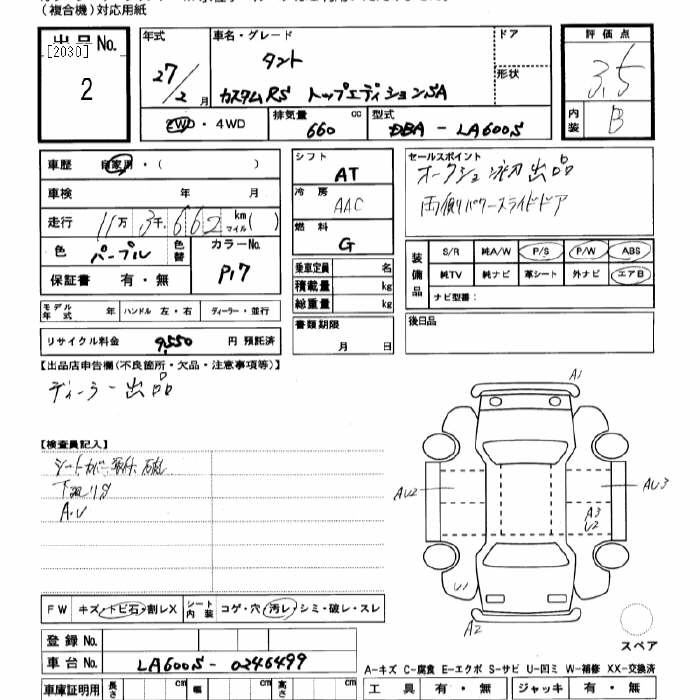 （複合機）対応用紙
出品No.
[2030]
2
年式
27/2 月
車名・グレード
タント
カスタムRS トップエディションSA
ドア
形状
2WD・4WD
排気量
660 cc
型式
DBA - LA600S
評価点
3.5
内装
B
車歴 自家用・（ ）
車検 年 月
走行 11万 3千 662 km マイル( )
色 パープル
色替
カラーNo.
P17
保証書 有・無
シフト
AT
冷房
AAC
燃料
G
乗車定員 名
積載量 kg
総重量 kg
書類期限
月 日
セールスポイント
オークション初出品
両側パワースライドドア
装備品
S/R 純A/W P/S P/W ABS
純TV 純ナビ 革シート 外ナビ エアB
ナビ型番：
後日品
モデル年式 年 ハンドル 左・右 ディーラー・並行
リサイクル料金 9,550 円 預託済
【出品店申告欄(不良箇所・欠品・注意事項等)】
ディーラー出品
【検査員記入】
下廻りS
A.U
FW キズ・トビ石・割レX
シート内装 コゲ・穴・汚レ・シミ・破レ・スレ
登録No.
車台No. LA600S - 0246499
車庫証明用 長さ cm 幅 cm 高さ cm
A1
AU2
AU3
A3
U2
U1
A2
スペア
A-キズ C-腐食 E-エクボ S-サビ U-凹ミ W-補修 XX-交換済
工具 有・無 ジャッキ 有・無